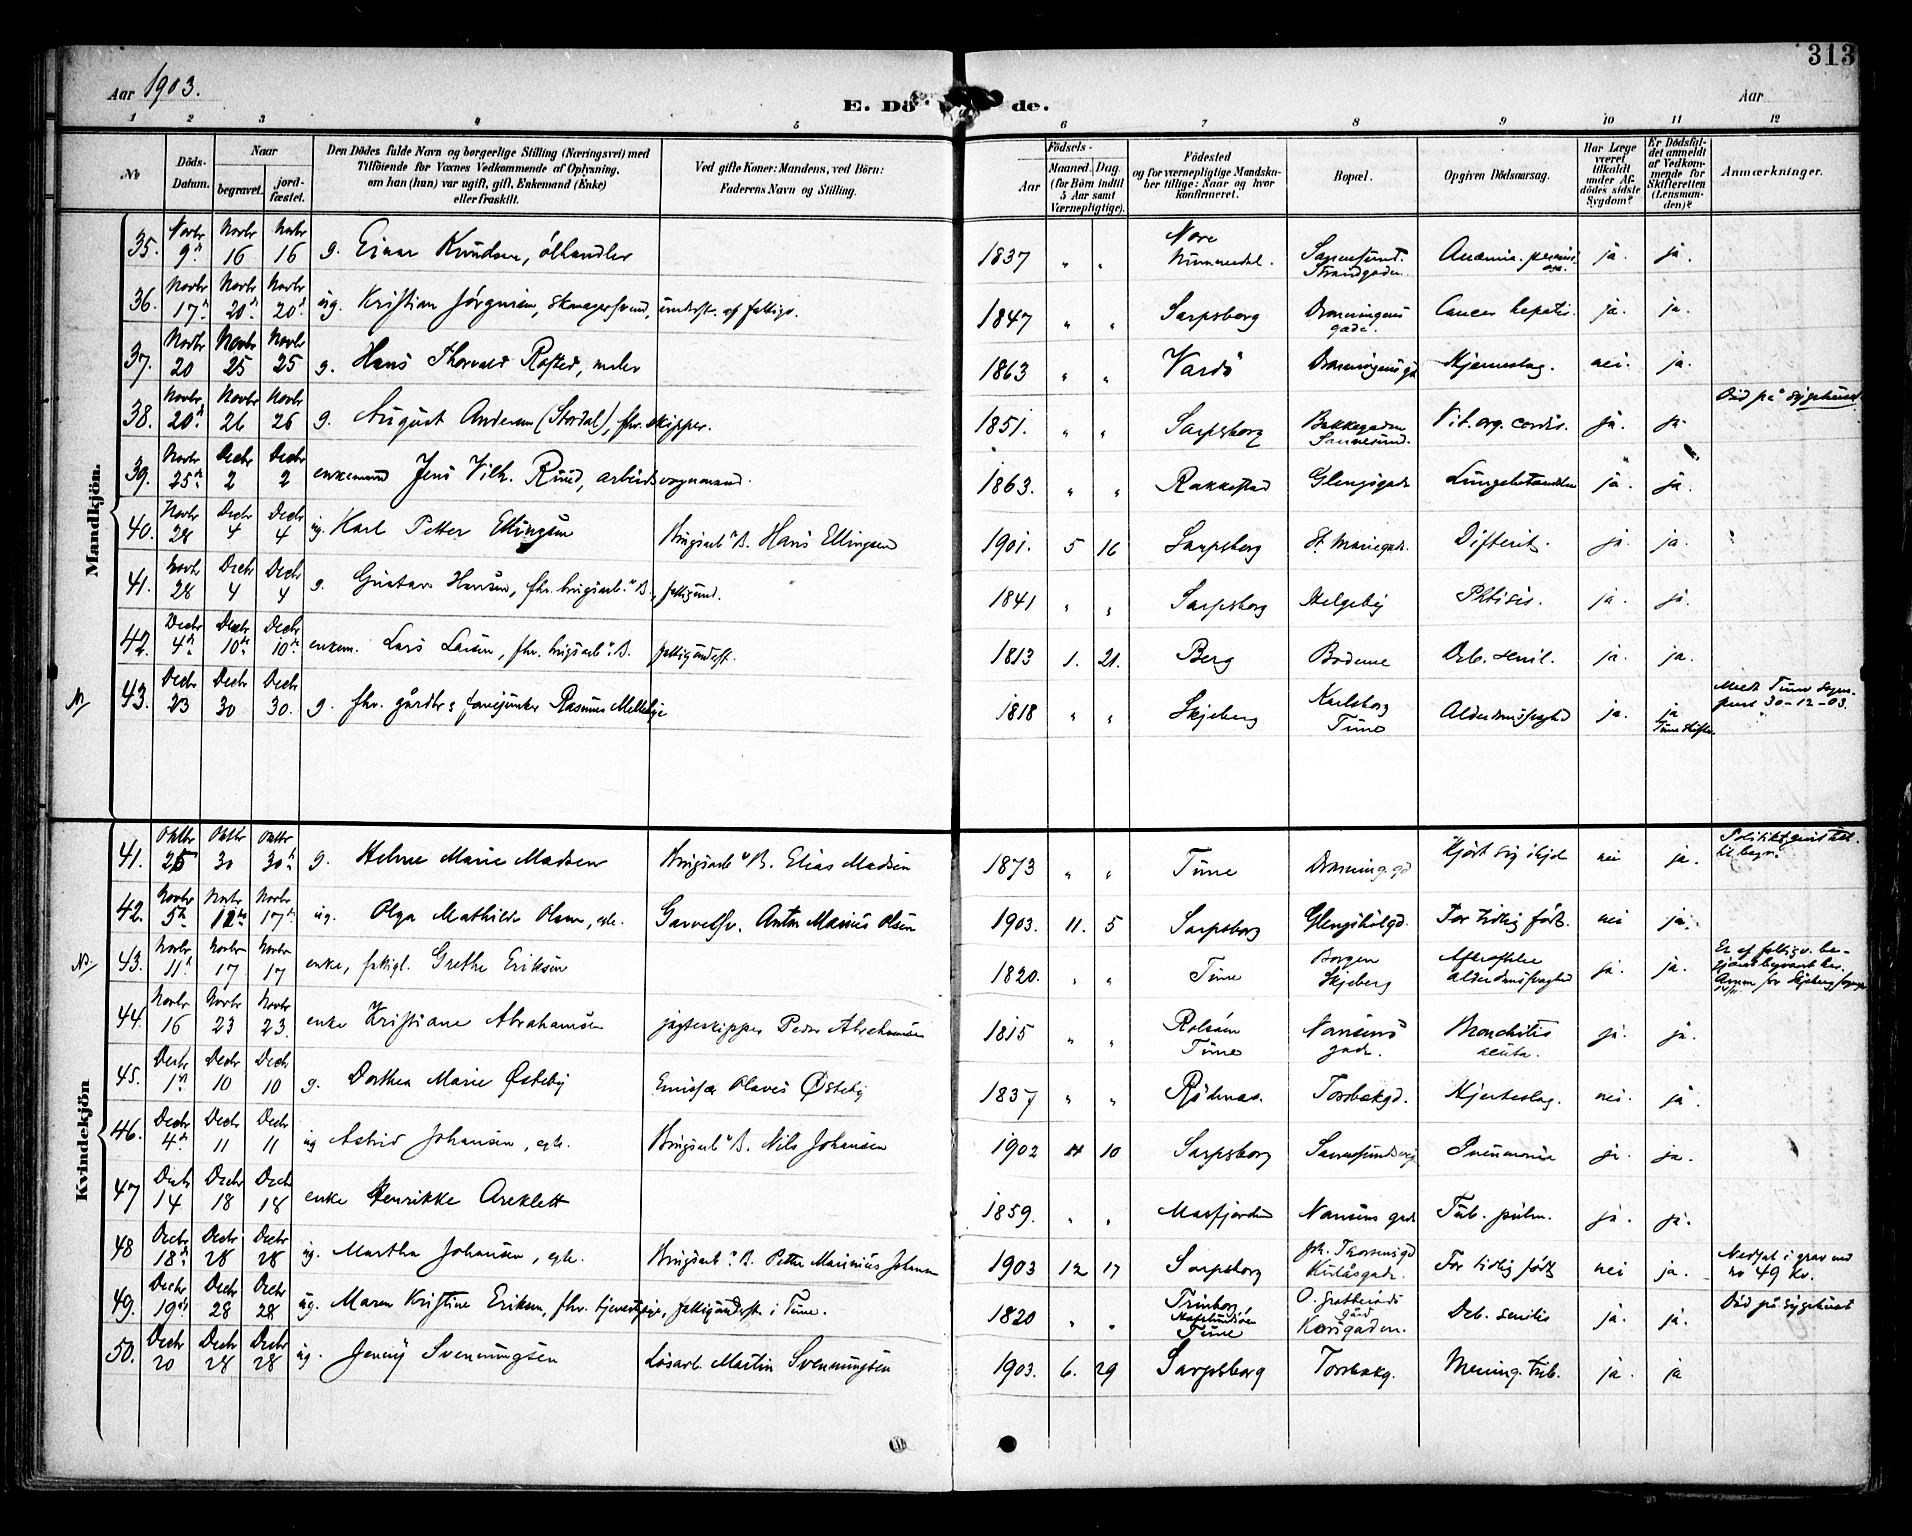 313
Aar 1903.
E. Dö de.
Aar
1 2 3 4 5 6 7 8 9 10 11 12
No
Döds-Datum.
Naar
begravet.
jord-fæstet.
Den Dödes fulde Navn og borgerlige Stilling (Næringsvei) med
Tilföiende for Voxnes Vedkommende af Oplysning,
om han (hun) var ugift, gift, Enkemand (Enke)
eller fraskilt.
Ved gifte Koner: Mandens, ved Börn:
Faderens Navn og Stilling.
Födsels-
Aar
Maaned. Dag.
(for Börn indtil
5 Aar samt
Værnepligtige).
Födested
og for værnepligtige Mandska-
ber tillige: Naar og hvor
konfirmeret.
Bopæl.
Opgiven Dödsaarsag.
Har Læge
været
tilkaldt
under Af-
dödes sidste
Sygdom?
Er Dödsfal-
det anmeldt
af Vedkom-
mende for
Skifteretten
(Lensman-
den)?
Anmærkninger.
Mandkjön.
35. Novbr 9de Novbr 16 Novbr 16 g. Einar Knudsen, ølhandler 1837 " " Nore Nummedal. Sannesund. Strandgaden. Anæmia perniciosa. ja. ja.
36. Novbr 17de Novbr 20de Novbr 20de ug. Kristian Jörgensen, skomagersvend, underst. af fattigv. 1847 " " Sarpsborg Dronningens gade. Cancer hepatis. ja. ja.
37. Novbr 20 Novbr 25 Novbr 25 g. Hans Thorvald Rofsted, maler 1863 " " Vardö Dronningensgd Hjerneslag. nei. ja.
38. Novbr 20de Novbr 26 Novbr 26 g. August Andersen (Stordal), fhv. skipper. 1851. " " Sarpsborg Bakkegaden Sannesund. Vit. org. cordis. ja. ja. Död på sygehuset
39. Novbr 25de Decbr 2 Decbr 2 enkemand Jens Vilh. Ruud, arbeidsvognmand. 1863. " " Rakkestad Glengsgade Lungebetændelse ja. ja.
40. Novbr 28 Decbr 4 Decbr 4 ug. Karl Petter Ellingsen Brugsarb. v. B. Hans Ellingsen 1901. 5 16 Sarpsborg St. Mariegade. Difterit. ja. ja.
41. Novbr 28 Decbr 4 Decbr 4 g. Gustav Hansen, fhv. brugsarb. v. B., fattigund. 1841 " " Sarpsborg Helgeby Phtisis. ja. ja.
42. Decbr 4de Decbr 10de Decbr 10de enkem. Lars Larsen, fhv. brugsarb. v. B. fattigunderst. 1813 1. 21. Berg Boderne Deb. senil. ja. ja.
43. Decbr 23 Decbr 30 Decbr 30. g. fhv. gårdbr. & furiejunker Rasmus Mellebye 1818 " " Skjeberg Karlsborg Tune Alderdomssvaghed ja. ja Tune Skifter. Meldt Tune sogneprest 30-12-03.
Kvindekjön
41. Oktbr 25 Oktbr 30 Oktbr 30te g. Helene Marie Madsen Brugsarb. v. B. Elias Madsen 1873 " " Tune Dronning.gd Kjört sig ihjel nei ja. til begr.
42. Novbr 5te Novbr 12te Novbr 17de ug. Olga Mathilde Olsen, egte. Garversv. Anton Marius Olsen 1903. 11. 5 Sarpsborg Glengshølgd. For tidlig født. nei ja.
43. Novbr 11te Novbr 17 Novbr 17 enke, fattigl. Grethe Eriksen 1820. " " Tune Borgen Skjeberg Alderdomssvaghed ja. ja. Er af fattigv. be-
44. Novbr 16 Novbr 23 Novbr 23. enke Kristiane Abrahamsen jagteskipper Peder Abrahamsen 1815 " " Rolsöen Tune Nansens gade. Bronchitis acuta. ja. ja.
45. Decbr 1ste Decbr 10 Decbr 10 g. Dorthea Marie Østeby Emissær Olaves Østeby 1837 " " Rödenæs. Torsbakgd. Hjerteslag. nei. ja.
46. Decbr 4de Decbr 11 Decbr 11 ug Astrid Johansen, egte. Brugsarb. v. B. Nils Johansen 1902 11 10 Sarpsborg Sannesundsvej Pneumonie ja. ja.
47 Decbr 14 Decbr 18 Decbr 18 enke Henrikke Areklett 1859. " " Masfjorden Nansens gade Tub. pulm. ja. ja.
48 Decbr 18de Decbr 28 Decbr 28 ug. Martha Johansen, egte. Brugsarb. v. B. Petter Marinius Johansen 1903 12 17 Sarpsborg Kirkåsgade. For tidlig født nei ja. Nedsat i grav med no 49 Kv.
49. Decbr 19de Decbr 28 Decbr 28 ug. Maren Kristine Eriksen, fhv. tjenestepige, fattigunderst. i Tune. 1820 " " Tune Korsgaden. Deb. senilis ja. ja. Död på sygehuset
50. Decbr 20 Decbr 28 Decbr 28 ug. Jenny Svenningsen Løsarb. Martin Svenningsen 1903. 6. 29 Sarpsborg Torsbakg. Mening. tub. ja. ja